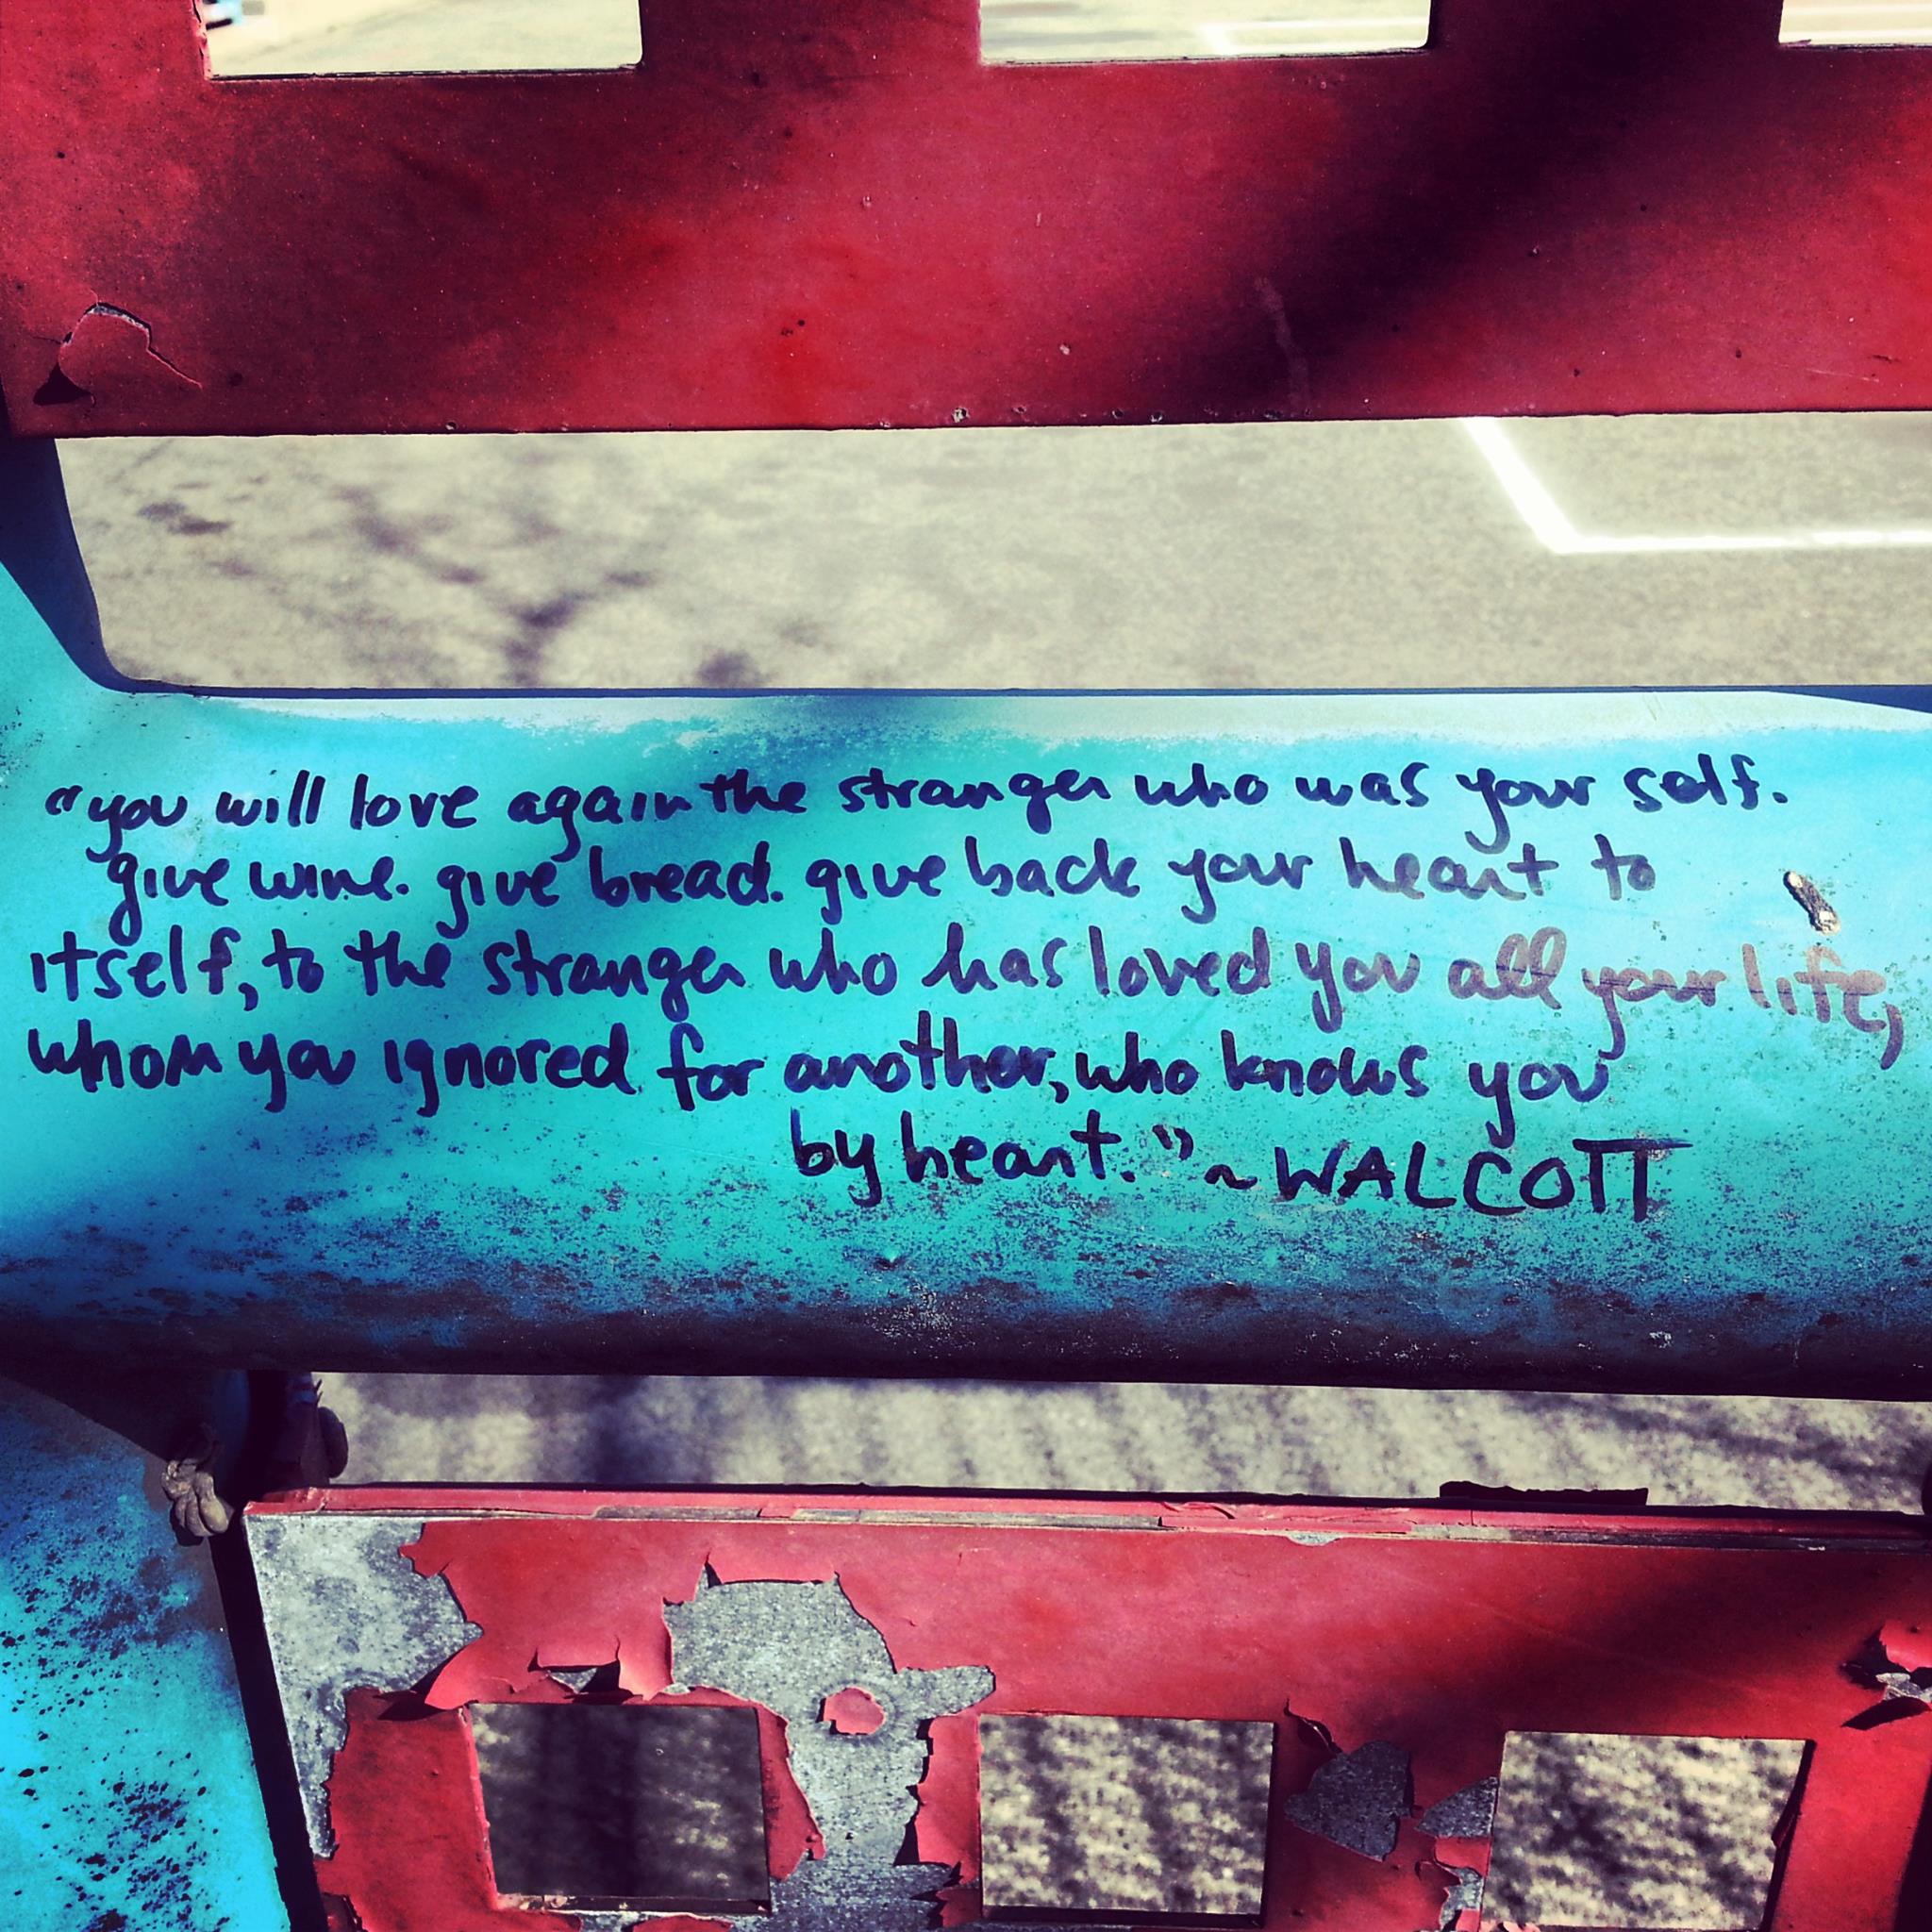 "you will love again the stranger who was your self.
give wine. give bread. give back your heart to
itself, to the stranger who has loved you all your life,
whom you ignored for another, who knows you
by heart." ~ WALCOTT